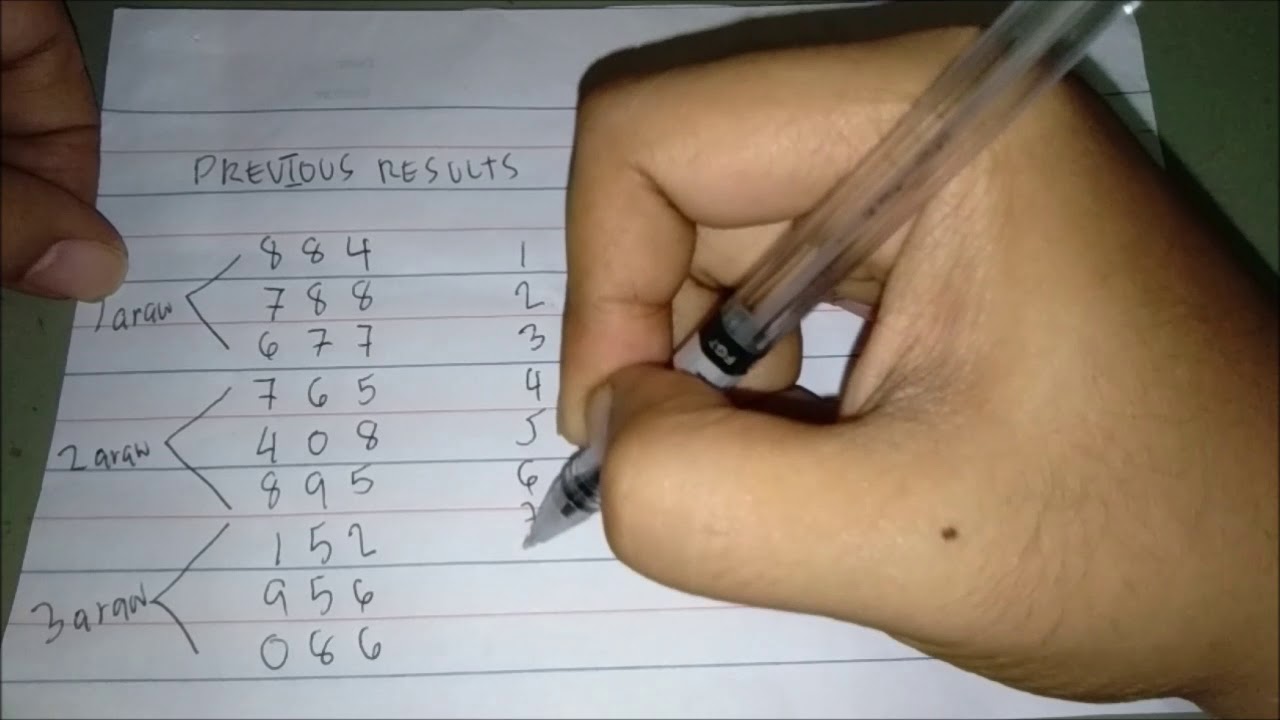 PREVIOUS RESULTS
8 8 4 1
1 araw
7 8 8 2
6 7 7 3
7 6 5 4
2 araw
4 0 8 5
8 9 5 6
7
1 5 2
3 araw
9 5 6
0 8 6